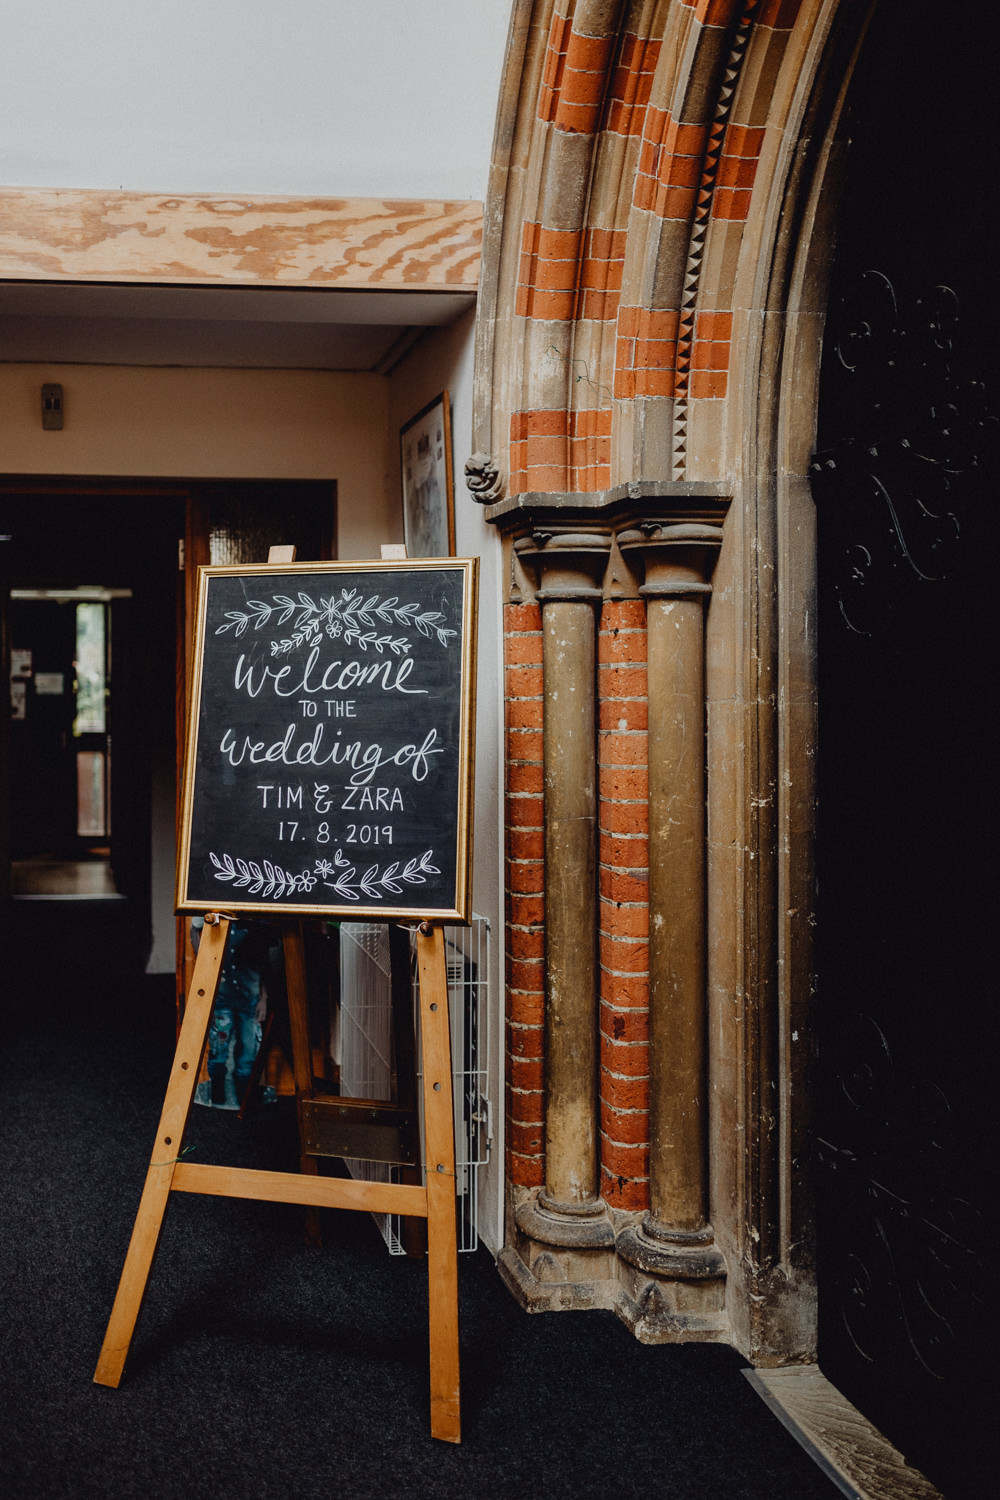 Welcome
TO THE
Wedding of
TIM & ZARA
17. 8. 2019